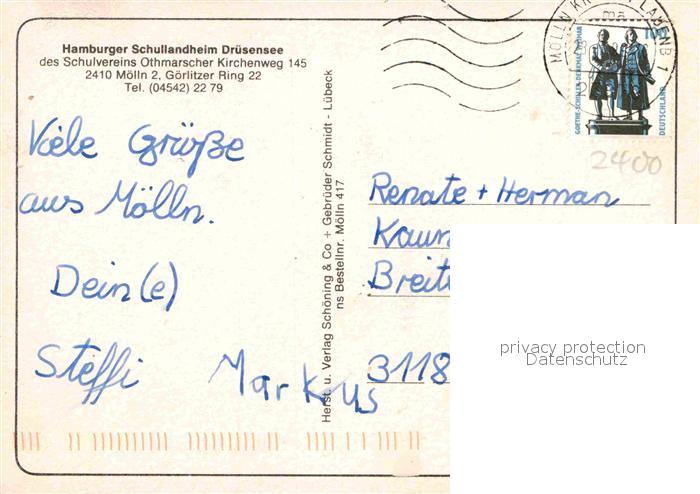 Hamburger Schullandheim Drüsensee
des Schulvereins Othmarscher Kirchenweg 145
2410 Mölln 2, Görlitzer Ring 22
Tel. (04542) 22 79
Viele Grüße
aus Mölln.
Dein(e)
Steffi
Markus
Herst. u. Verlag Schöning & Co + Gebrüder Schmidt - Lübeck
ns Bestellnr. Mölln 417
MÖLLN
GOETHE-SCHILLER-DENKMAL WEIMAR
100
DEUTSCHLAND
2400
Renate + Herman
Kaun
Breit
3118
privacy protection
Datenschutz